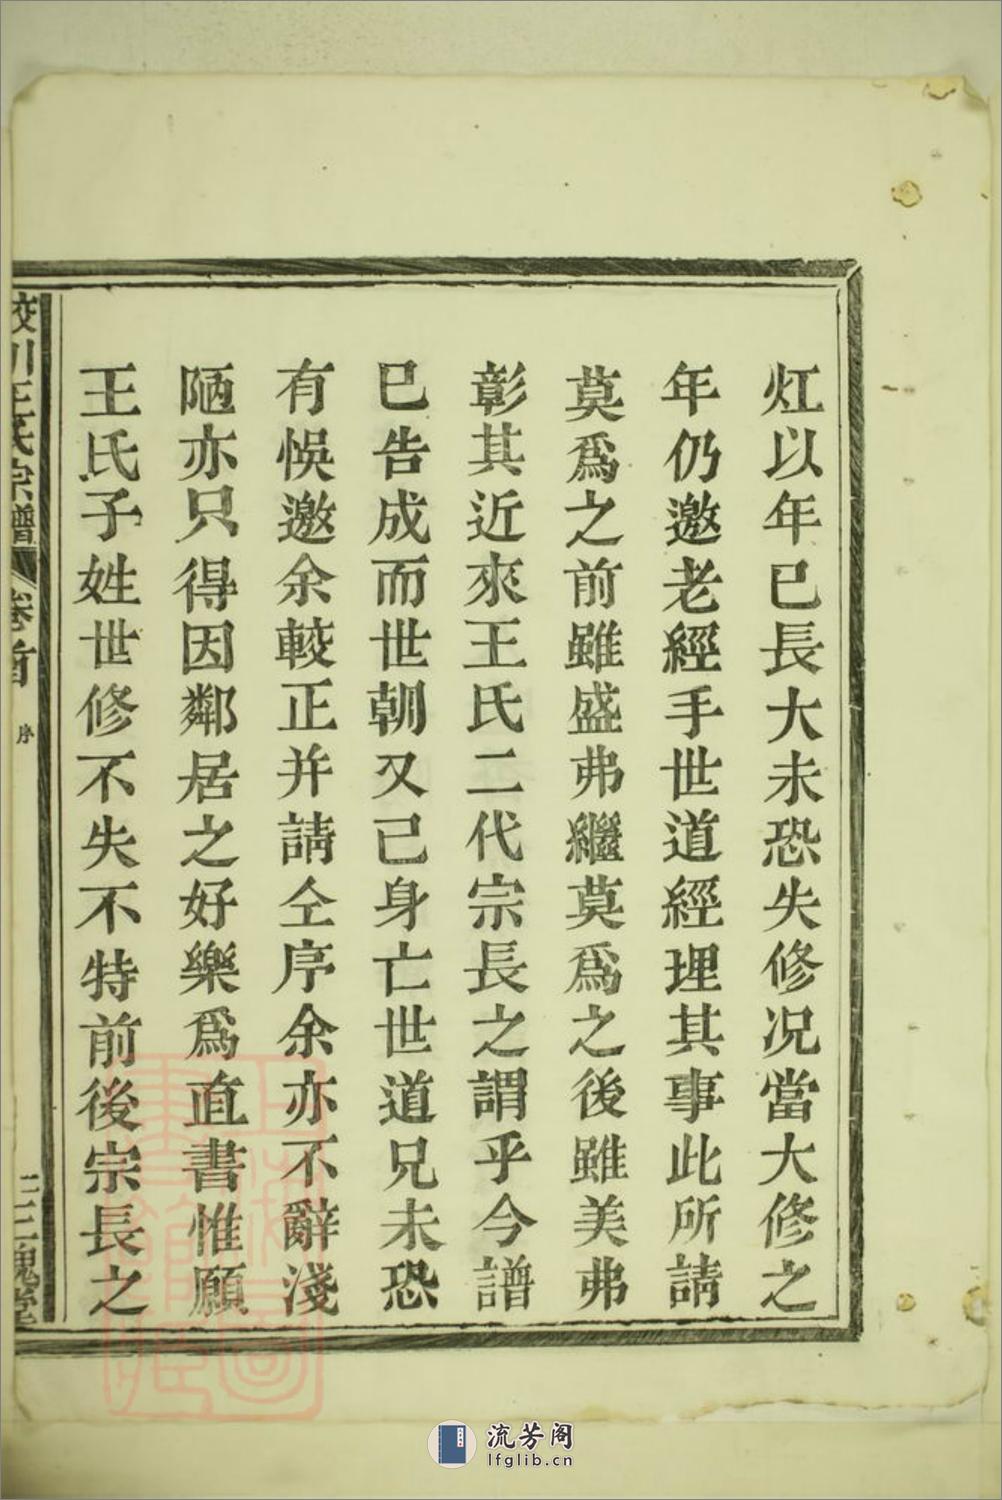 灴以年已長大未恐失修况當大修之
年仍邀老經手世道經理其事此所請
莫爲之前雖盛弗繼莫爲之後雖美弗
彰其近來王氏二代宗長之謂乎今譜
已告成而世朝又己身亡世道兄未恐
有悞邀余較正并請仝序余亦不辭淺
陋亦只得因鄰居之好樂爲直書惟願
王氏子姓世修不失不特前後宗長之
川王氏宗譜 卷首 序 三槐堂
流芳阁
lfglib.cn